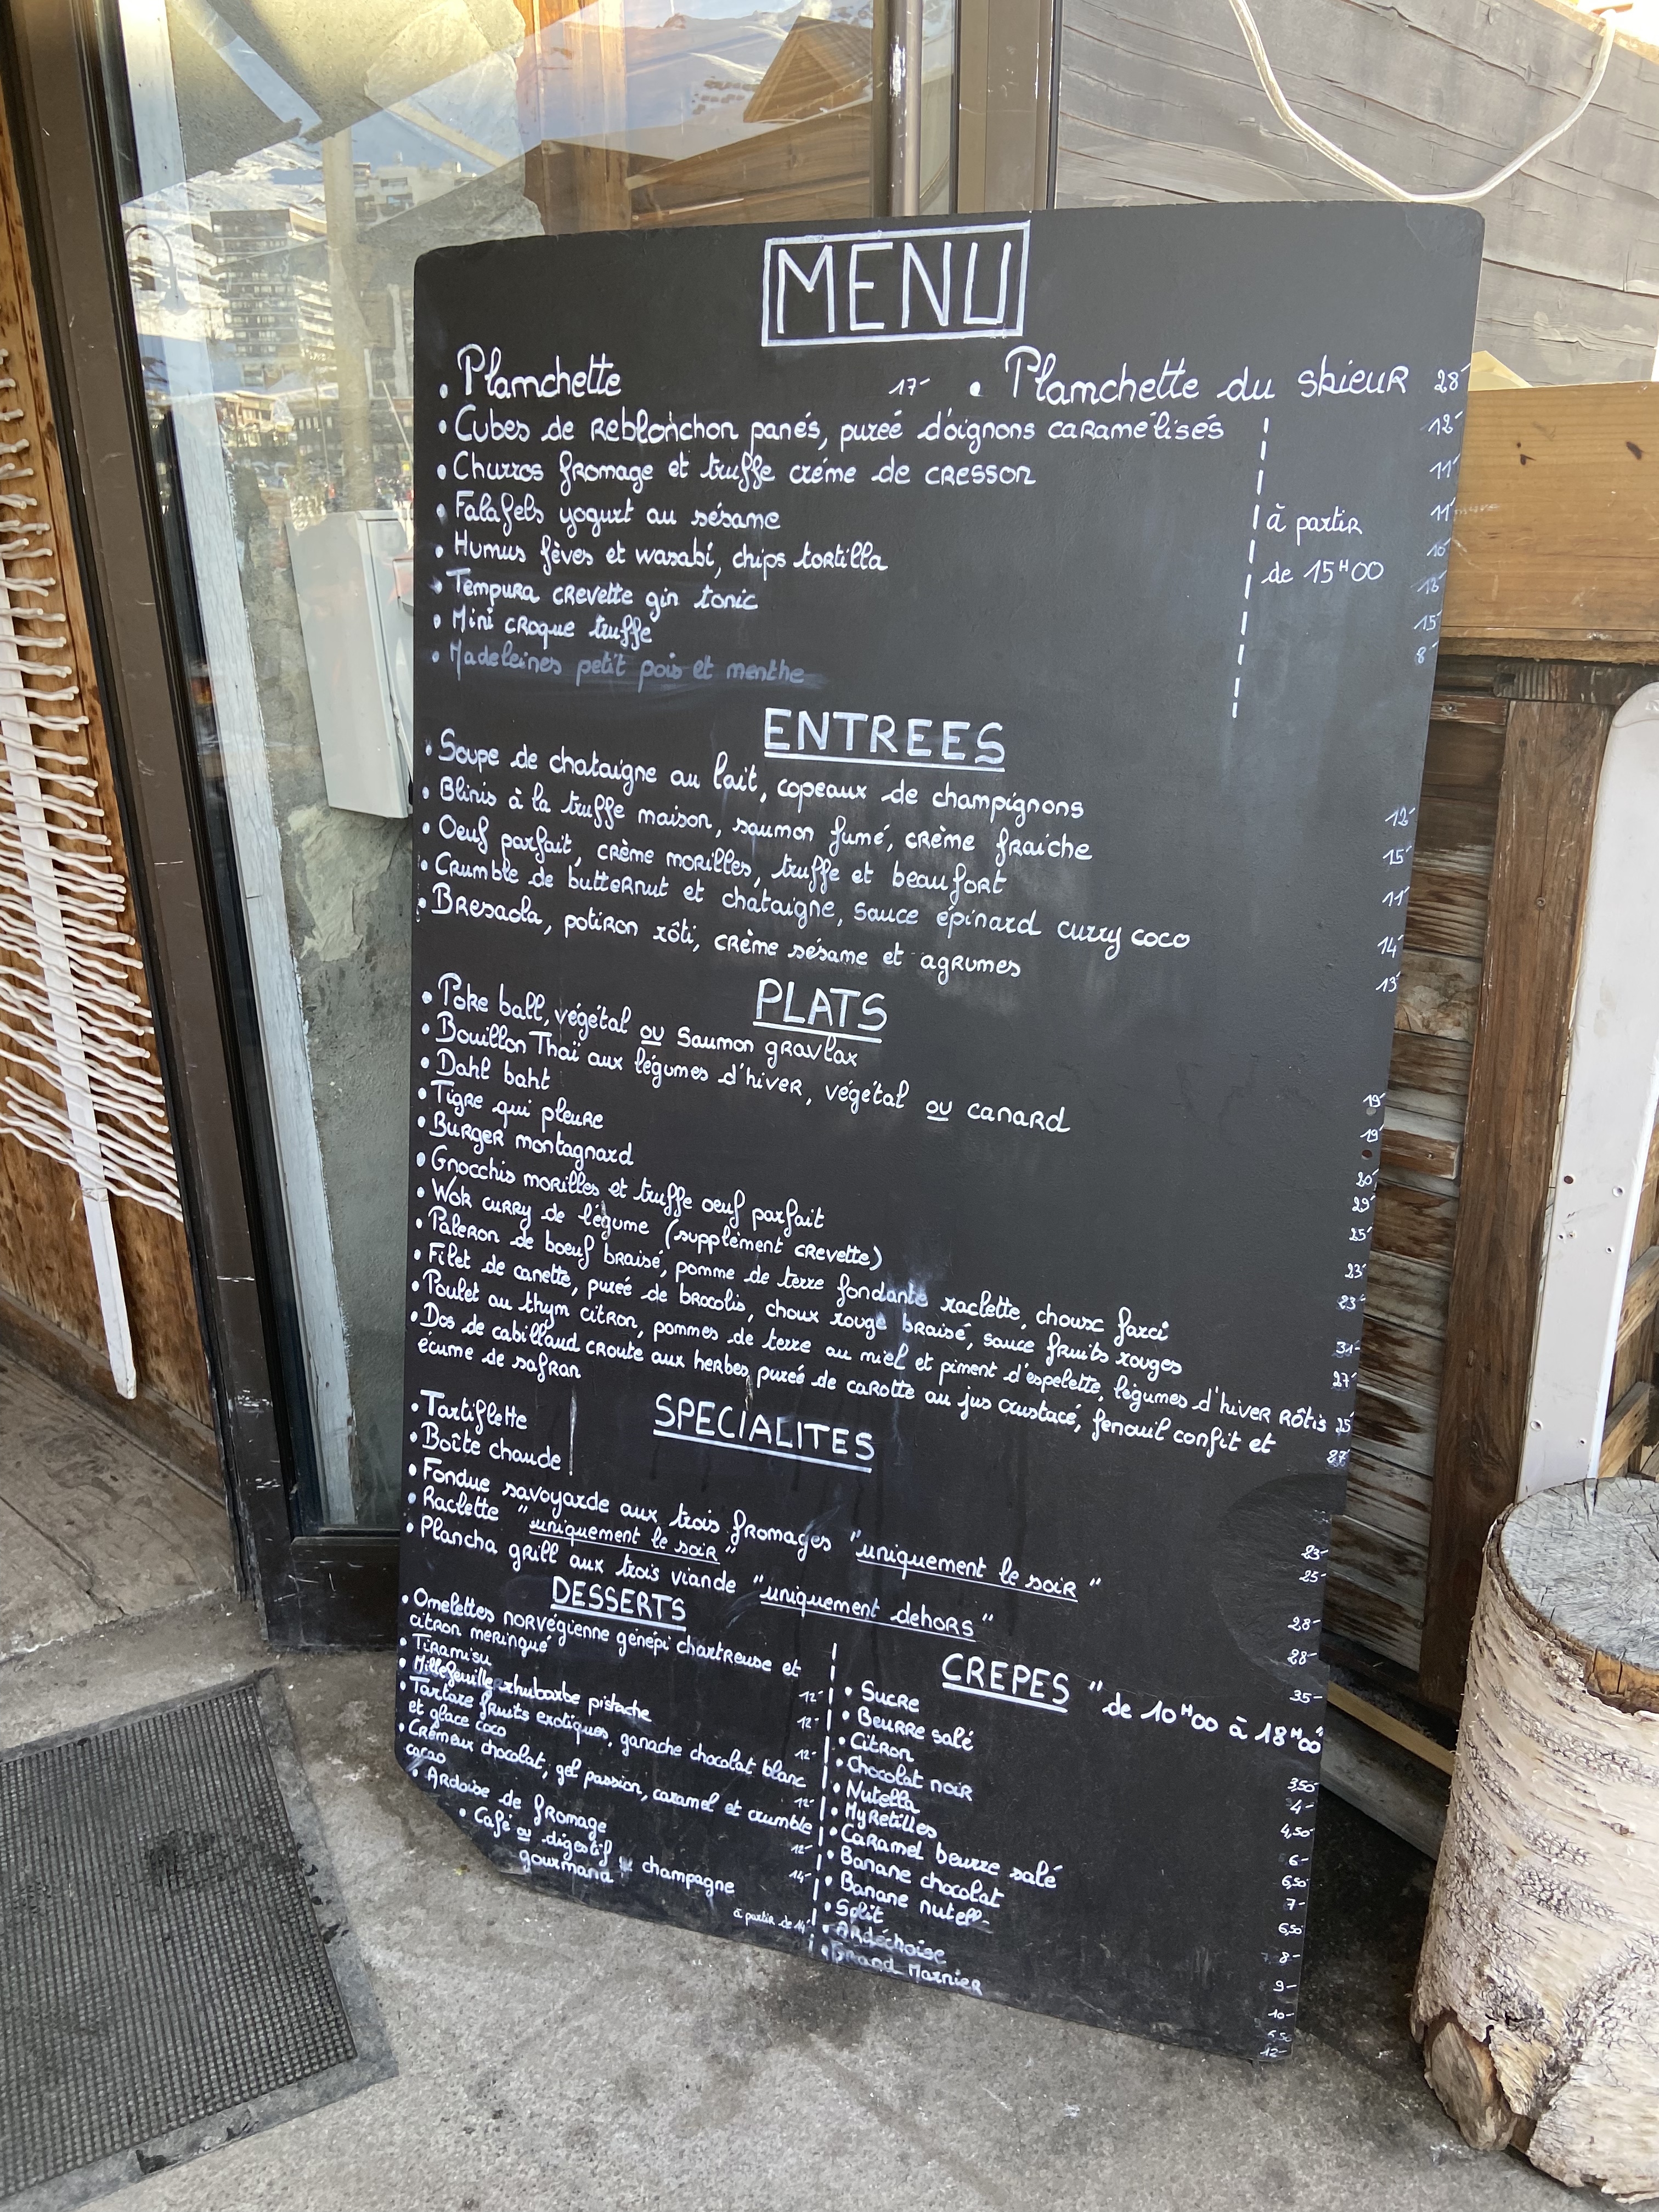 MENU
• Planchette 17- • Planchette du skieur 28-
• Cubes de Reblochon panés, pureé d'oignons caramélisés 12-
• Churros fromage et truffe créme de cresson 11-
• Falafels yogurt au sésame à partir 11-
• Humus fèves et wasabi, chips tortilla de 15H00 10-
• Tempura crevette gin tonic
• Mini croque truffe 15-
• Madeleines petit pois et menthe 8-
ENTREES
• Soupe de chataigne au lait, copeaux de champignons 12-
• Blinis à la truffe maison, saumon fumé, crème fraiche 15-
• Oeuf parfait, crème morilles, truffe et beaufort 11-
• Crumble de butternut et chataigne, sauce épinard curry coco 14-
• Bresaola, potiron rôti, crème sésame et agrumes 13-
PLATS
• Poke ball, végétal ou Saumon gravlax 19-
• Bouillon Thaï aux légumes d'hiver, végétal ou canard 19-
• Dahl baht 20-
• Tigre qui pleure 29-
• Burger montagnard 25-
• Gnocchis morilles et truffe oeuf parfait 23-
• Wok curry de légume (supplément crevette) 23-
• Paleron de boeuf braisé, pomme de terre fondante raclette, choux farci 31-
• Filet de canette, pureé de brocolis, choux rouge braisé, sauce fruits rouges 27-
• Poulet au thym citron, pommes de terre au miel et piment d'espelette, légumes d'hiver rôtis 25-
• Dos de cabillaud croute aux herbes, pureé de carotte au jus crustacé, fenouil confit et 27-
écume de safran
SPECIALITES
• Tartiflette 23-
• Boîte chaude 25-
• Fondue savoyarde aux trois fromages "uniquement le soir" 28-
• Raclette "uniquement le soir" 28-
• Plancha grill aux trois viande "uniquement dehors" 35-
DESSERTS
• Omelettes norvégienne génépi chartreuse et
citron meringué 12-
• Tiramisu 12-
• Millefeuille rhubarbe pistache 12-
• Tartare fruits exotiques, ganache chocolat blanc
et glace coco 12-
• Crémeux chocolat, gel passion, caramel et crumble
cacao 12-
• Ardoise de fromage 14-
• Café ou digestif champagne
gourmand à partir de 14-
CREPES "de 10H00 à 18H00"
• Sucre 3,50-
• Beurre salé 4-
• Citron 4,50-
• Chocolat noir 6-
• Nutella 6,50-
• Myrtilles 7-
• Caramel beurre salé 6,50-
• Banane chocolat 8-
• Banane nutell 9-
• Split 10-
• Ardéchoise
• Grand Marnier 12-